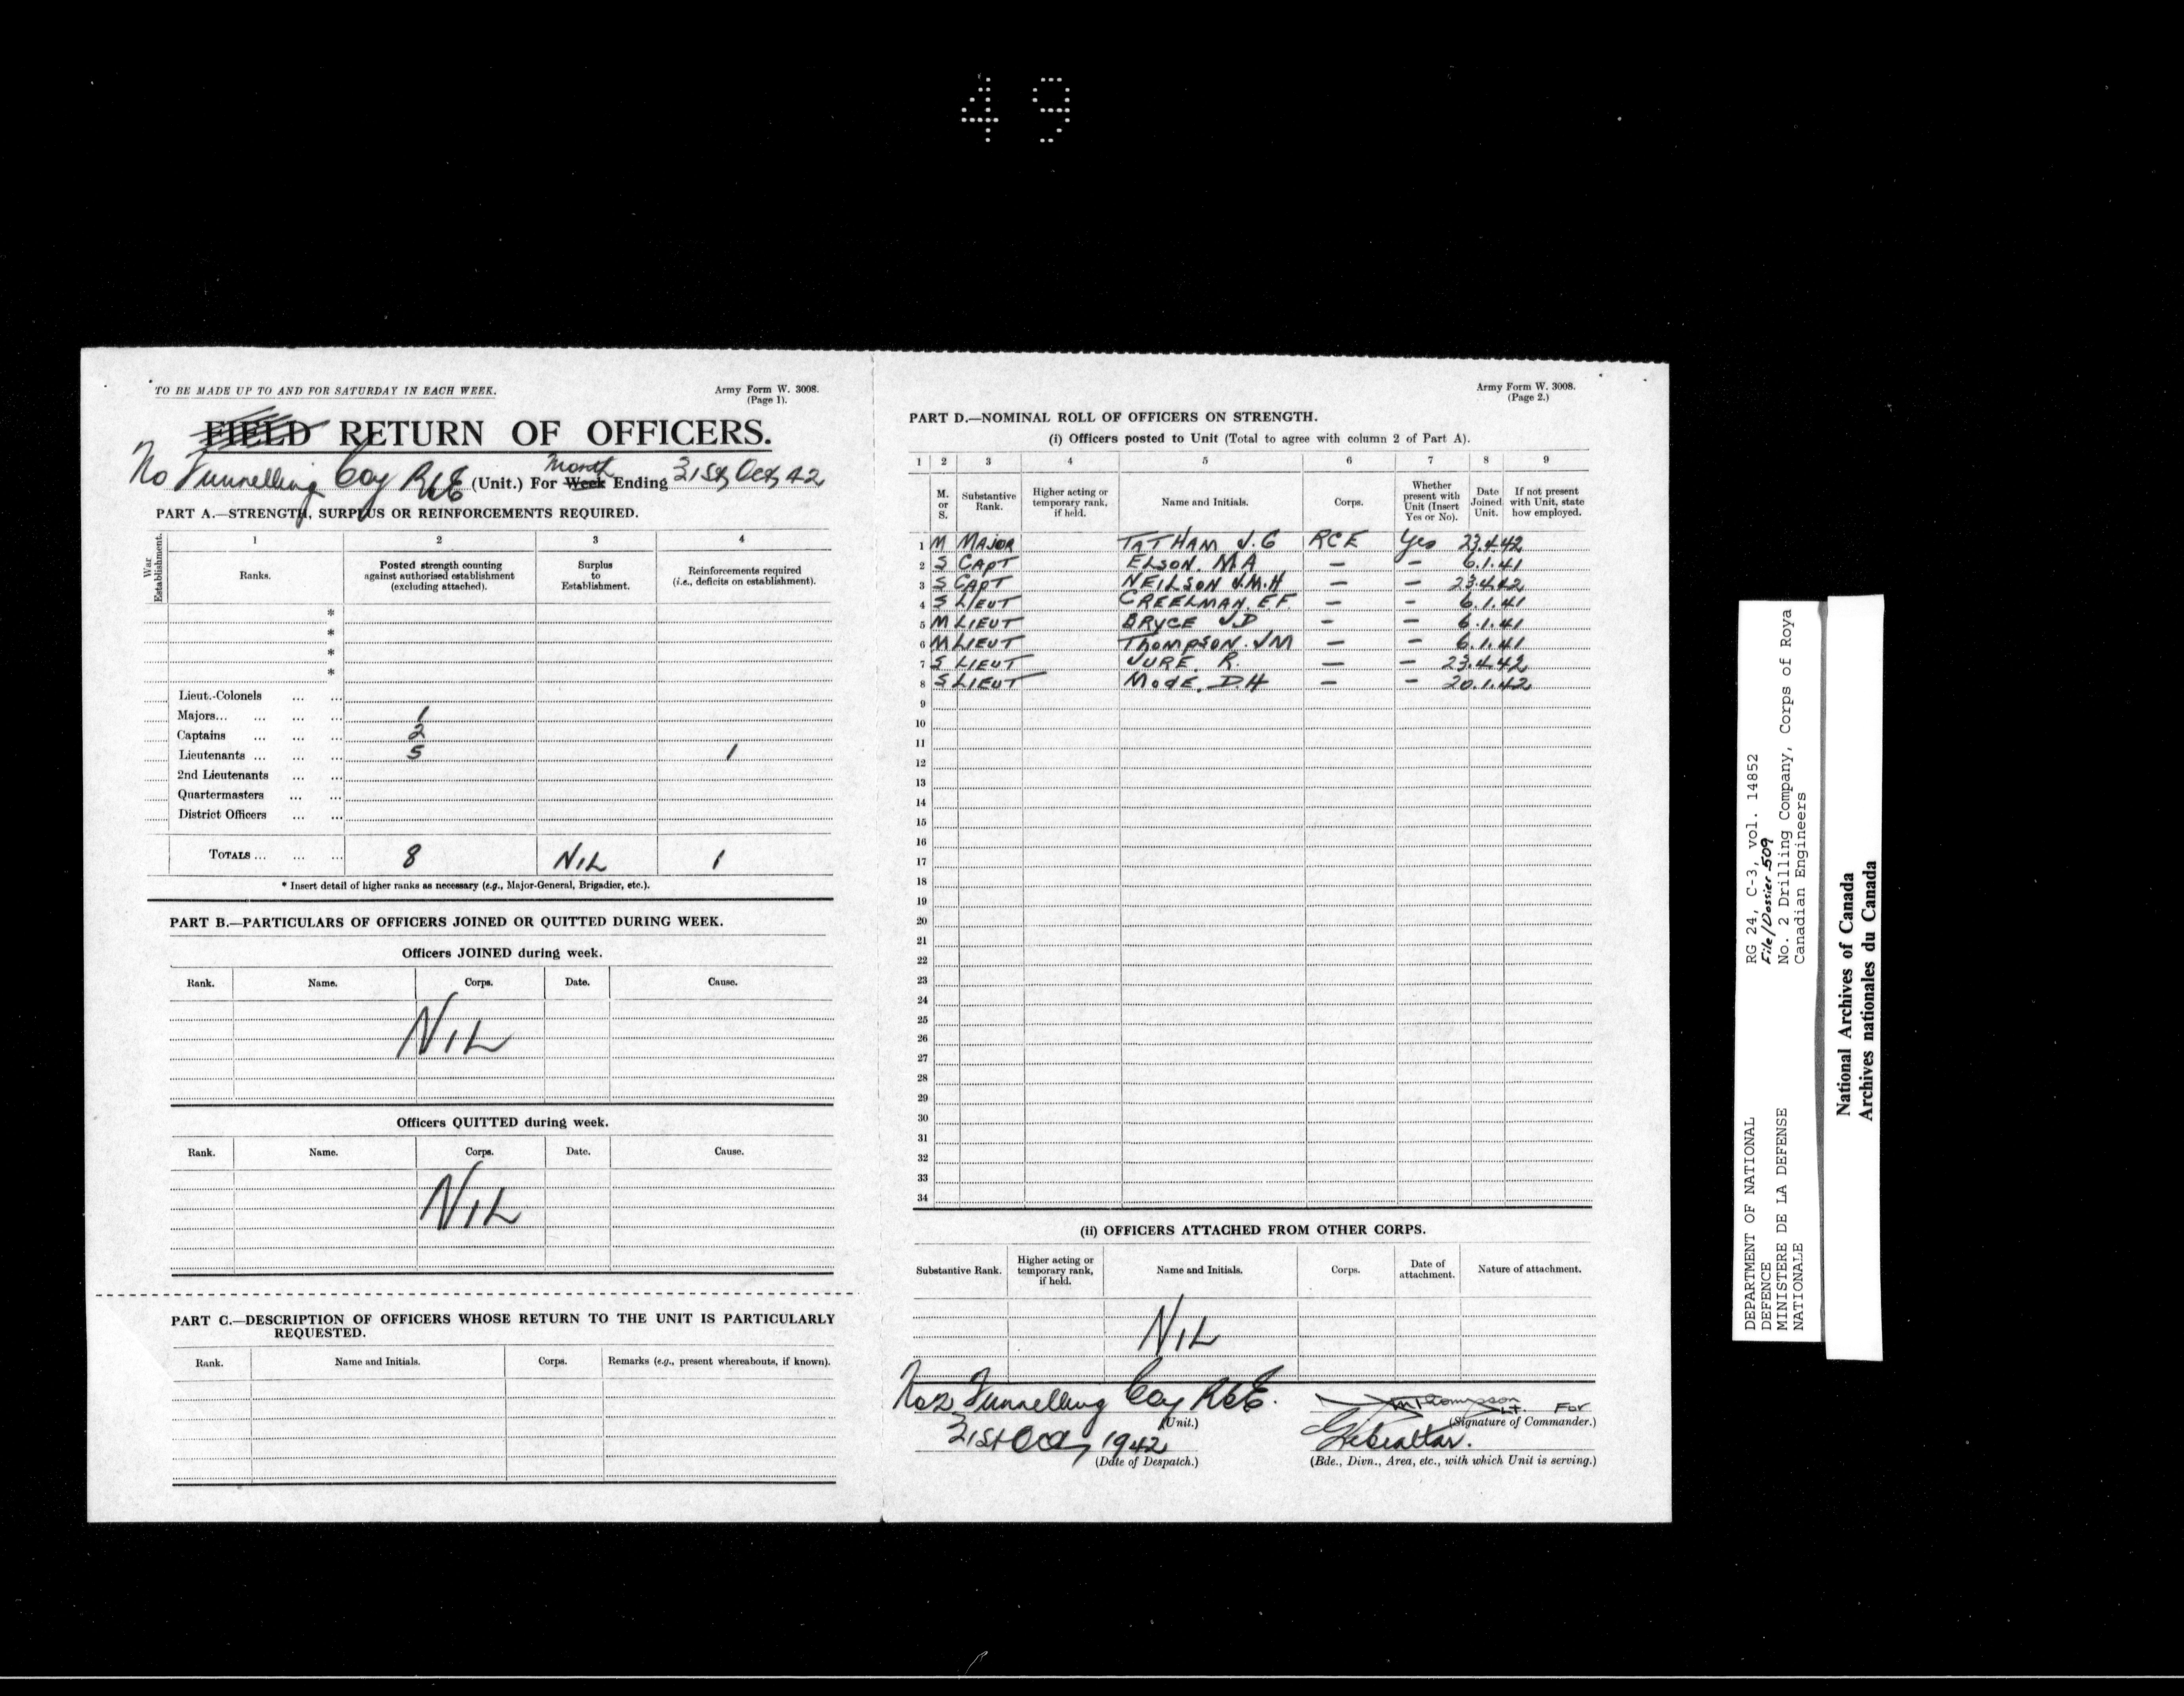 49
TO BE MADE UP TO AND FOR SATURDAY IN EACH WEEK.
Army Form W. 3008.
(Page 1).
FIELD RETURN OF OFFICERS.
No Tunnelling Coy RCE (Unit.) For Week Month Ending 31st Oct 42
PART A.—STRENGTH, SURPLUS OR REINFORCEMENTS REQUIRED.
War Establishment.
1 2 3 4
Ranks.
Posted strength counting against authorised establishment (excluding attached).
Surplus to Establishment.
Reinforcements required (i.e., deficits on establishment).
*
*
*
*
Lieut.-Colonels ... ...
Majors... ... ... ... 1
Captains ... ... ... 2
Lieutenants ... ... ... 5 1
2nd Lieutenants ... ...
Quartermasters ... ...
District Officers ... ...
TOTALS ... ... ... 8 NIL 1
* Insert detail of higher ranks as necessary (e.g., Major-General, Brigadier, etc.).
PART B.—PARTICULARS OF OFFICERS JOINED OR QUITTED DURING WEEK.
Officers JOINED during week.
Rank. Name. Corps. Date. Cause.
NIL
Officers QUITTED during week.
Rank. Name. Corps. Date. Cause.
NIL
PART C.—DESCRIPTION OF OFFICERS WHOSE RETURN TO THE UNIT IS PARTICULARLY
REQUESTED.
Rank. Name and Initials. Corps. Remarks (e.g., present whereabouts, if known).
Army Form W. 3008.
(Page 2.)
PART D.—NOMINAL ROLL OF OFFICERS ON STRENGTH.
(i) Officers posted to Unit (Total to agree with column 2 of Part A).
1 2 3 4 5 6 7 8 9
M. or S.
Substantive Rank.
Higher acting or temporary rank, if held.
Name and Initials.
Corps.
Whether present with Unit (Insert Yes or No).
Date Joined Unit.
If not present with Unit, state how employed.
1 M MAJOR TATHAM J.G RCE Yes 23.4.42
2 S CAPT ELSON. M A — — 6.1.41
3 S CAPT NEILSON J.M.H — — 23.4.42
4 S LIEUT CREELMAN. E F. — — 6.1.41
5 M LIEUT BRYCE J D — — 6.1.41
6 M LIEUT THOMPSON. J M — — 6.1.41
7 S LIEUT JURE. R. — — 23.4.42
8 S LIEUT MODE. D.H — — 20.1.42
9
10
11
12
13
14
15
16
17
18
19
20
21
22
23
24
25
26
27
28
29
30
31
32
33
34
(ii) OFFICERS ATTACHED FROM OTHER CORPS.
Substantive Rank.
Higher acting or temporary rank, if held.
Name and Initials.
Corps.
Date of attachment.
Nature of attachment.
NIL
No 2 Tunnelling Coy RCE.
(Unit.)
31st Oct 1942
(Date of Despatch.)
JM Thompson LT. FOR
(Signature of Commander.)
Gibraltar.
(Bde., Divn., Area, etc., with which Unit is serving.)
DEPARTMENT OF NATIONAL
DEFENCE
MINISTERE DE LA DEFENSE
NATIONALE
RG 24, C-3, vol. 14852
File/Dossier 509
No. 2 Drilling Company, Corps of Roya
Canadian Engineers
National Archives of Canada
Archives nationales du Canada